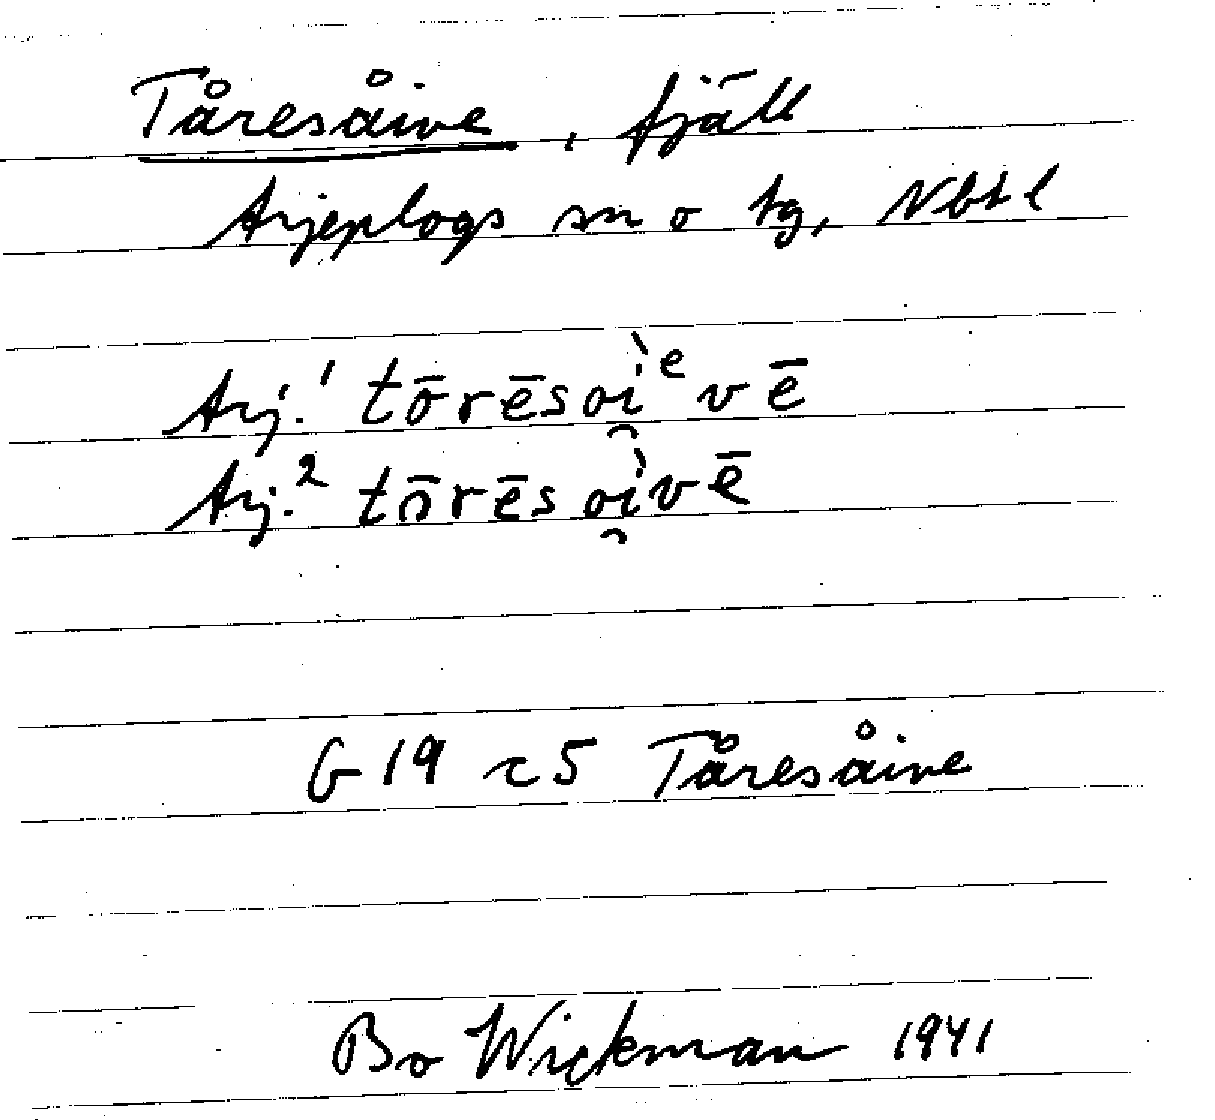 Tåresåive, fjäll
Arjeplogs sn o tg, Nbt l
Arj.¹ tōrēsoì̯ᵉvē
Arj.² tōrēsoì̯vē
G 19 c5 Tåresåive
Bo Wickman 1941